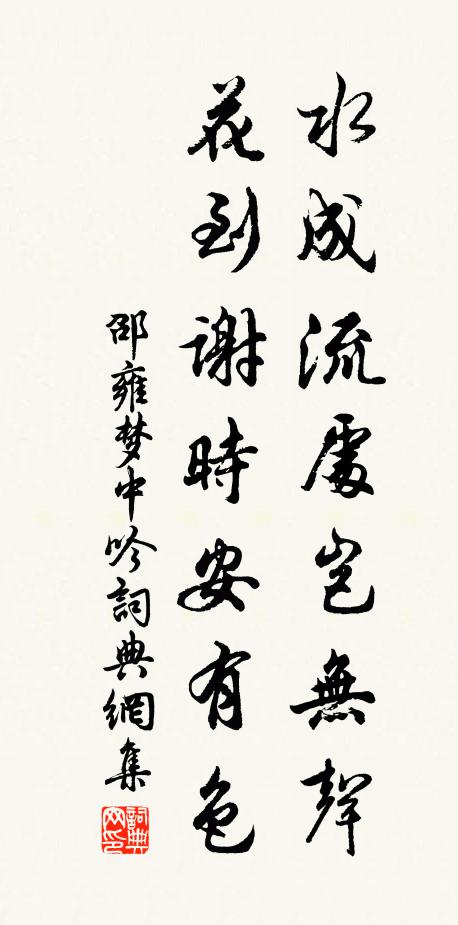 水成流處豈無聲
花到謝時安有色
邵雍梦中吟詞典網集
詞典网印